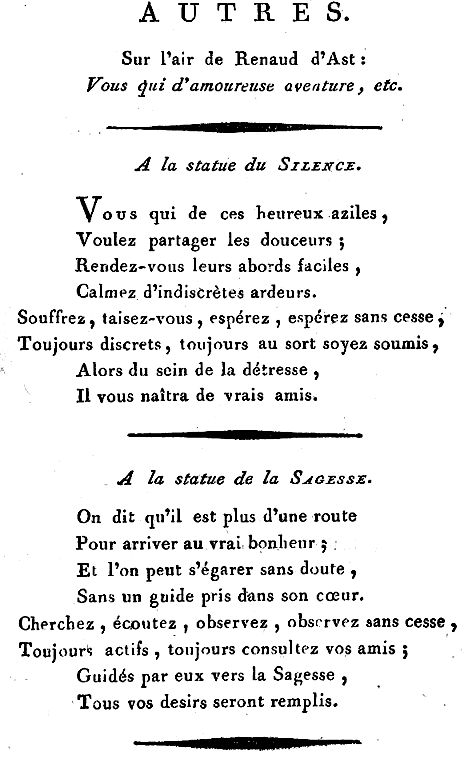 AUTRES.
Sur l'air de Renaud d'Ast :
Vous qui d'amoureuse aventure, etc.
A la statue du SILENCE.
Vous qui de ces heureux aziles,
Voulez partager les douceurs ;
Rendez-vous leurs abords faciles,
Calmez d'indiscrètes ardeurs.
Souffrez, taisez-vous, espérez, espérez sans cesse,
Toujours discrets, toujours au sort soyez soumis,
Alors du sein de la détresse,
Il vous naîtra de vrais amis.
A la statue de la SAGESSE.
On dit qu'il est plus d'une route
Pour arriver au vrai bonheur ;
Et l'on peut s'égarer sans doute,
Sans un guide pris dans son cœur.
Cherchez, écoutez, observez, observez sans cesse,
Toujours actifs, toujours consultez vos amis ;
Guidés par eux vers la Sagesse,
Tous vos desirs seront remplis.